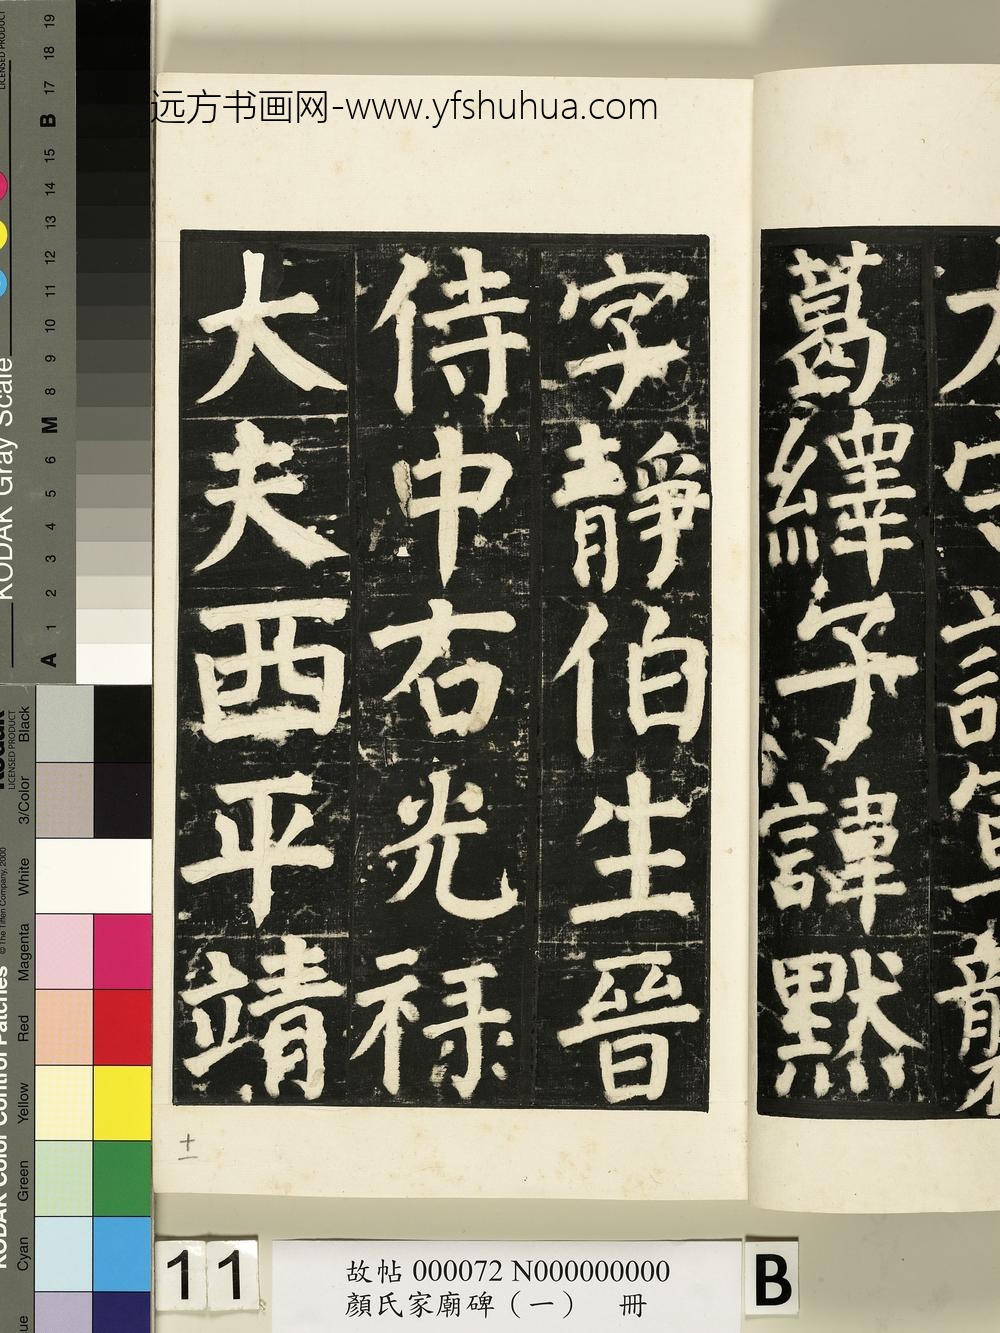 远方书画网-www.yfshuhua.com
葛繹子諱默
字靜伯生晉
侍中右光禄
大夫西平靖
十一
11
B
故帖 000072 N000000000
顏氏家廟碑（一） 冊
KODAK Gray Scale
LICENSED PRODUCT
A 1 2 3 4 5 6 M 8 9 10 11 12 13 14 15 B 17 18 19
KODAK Color Control Patches
© The Tiffen Company, 2000
Kodak
LICENSED PRODUCT
Cyan Green Yellow Red Magenta White 3/Color Black